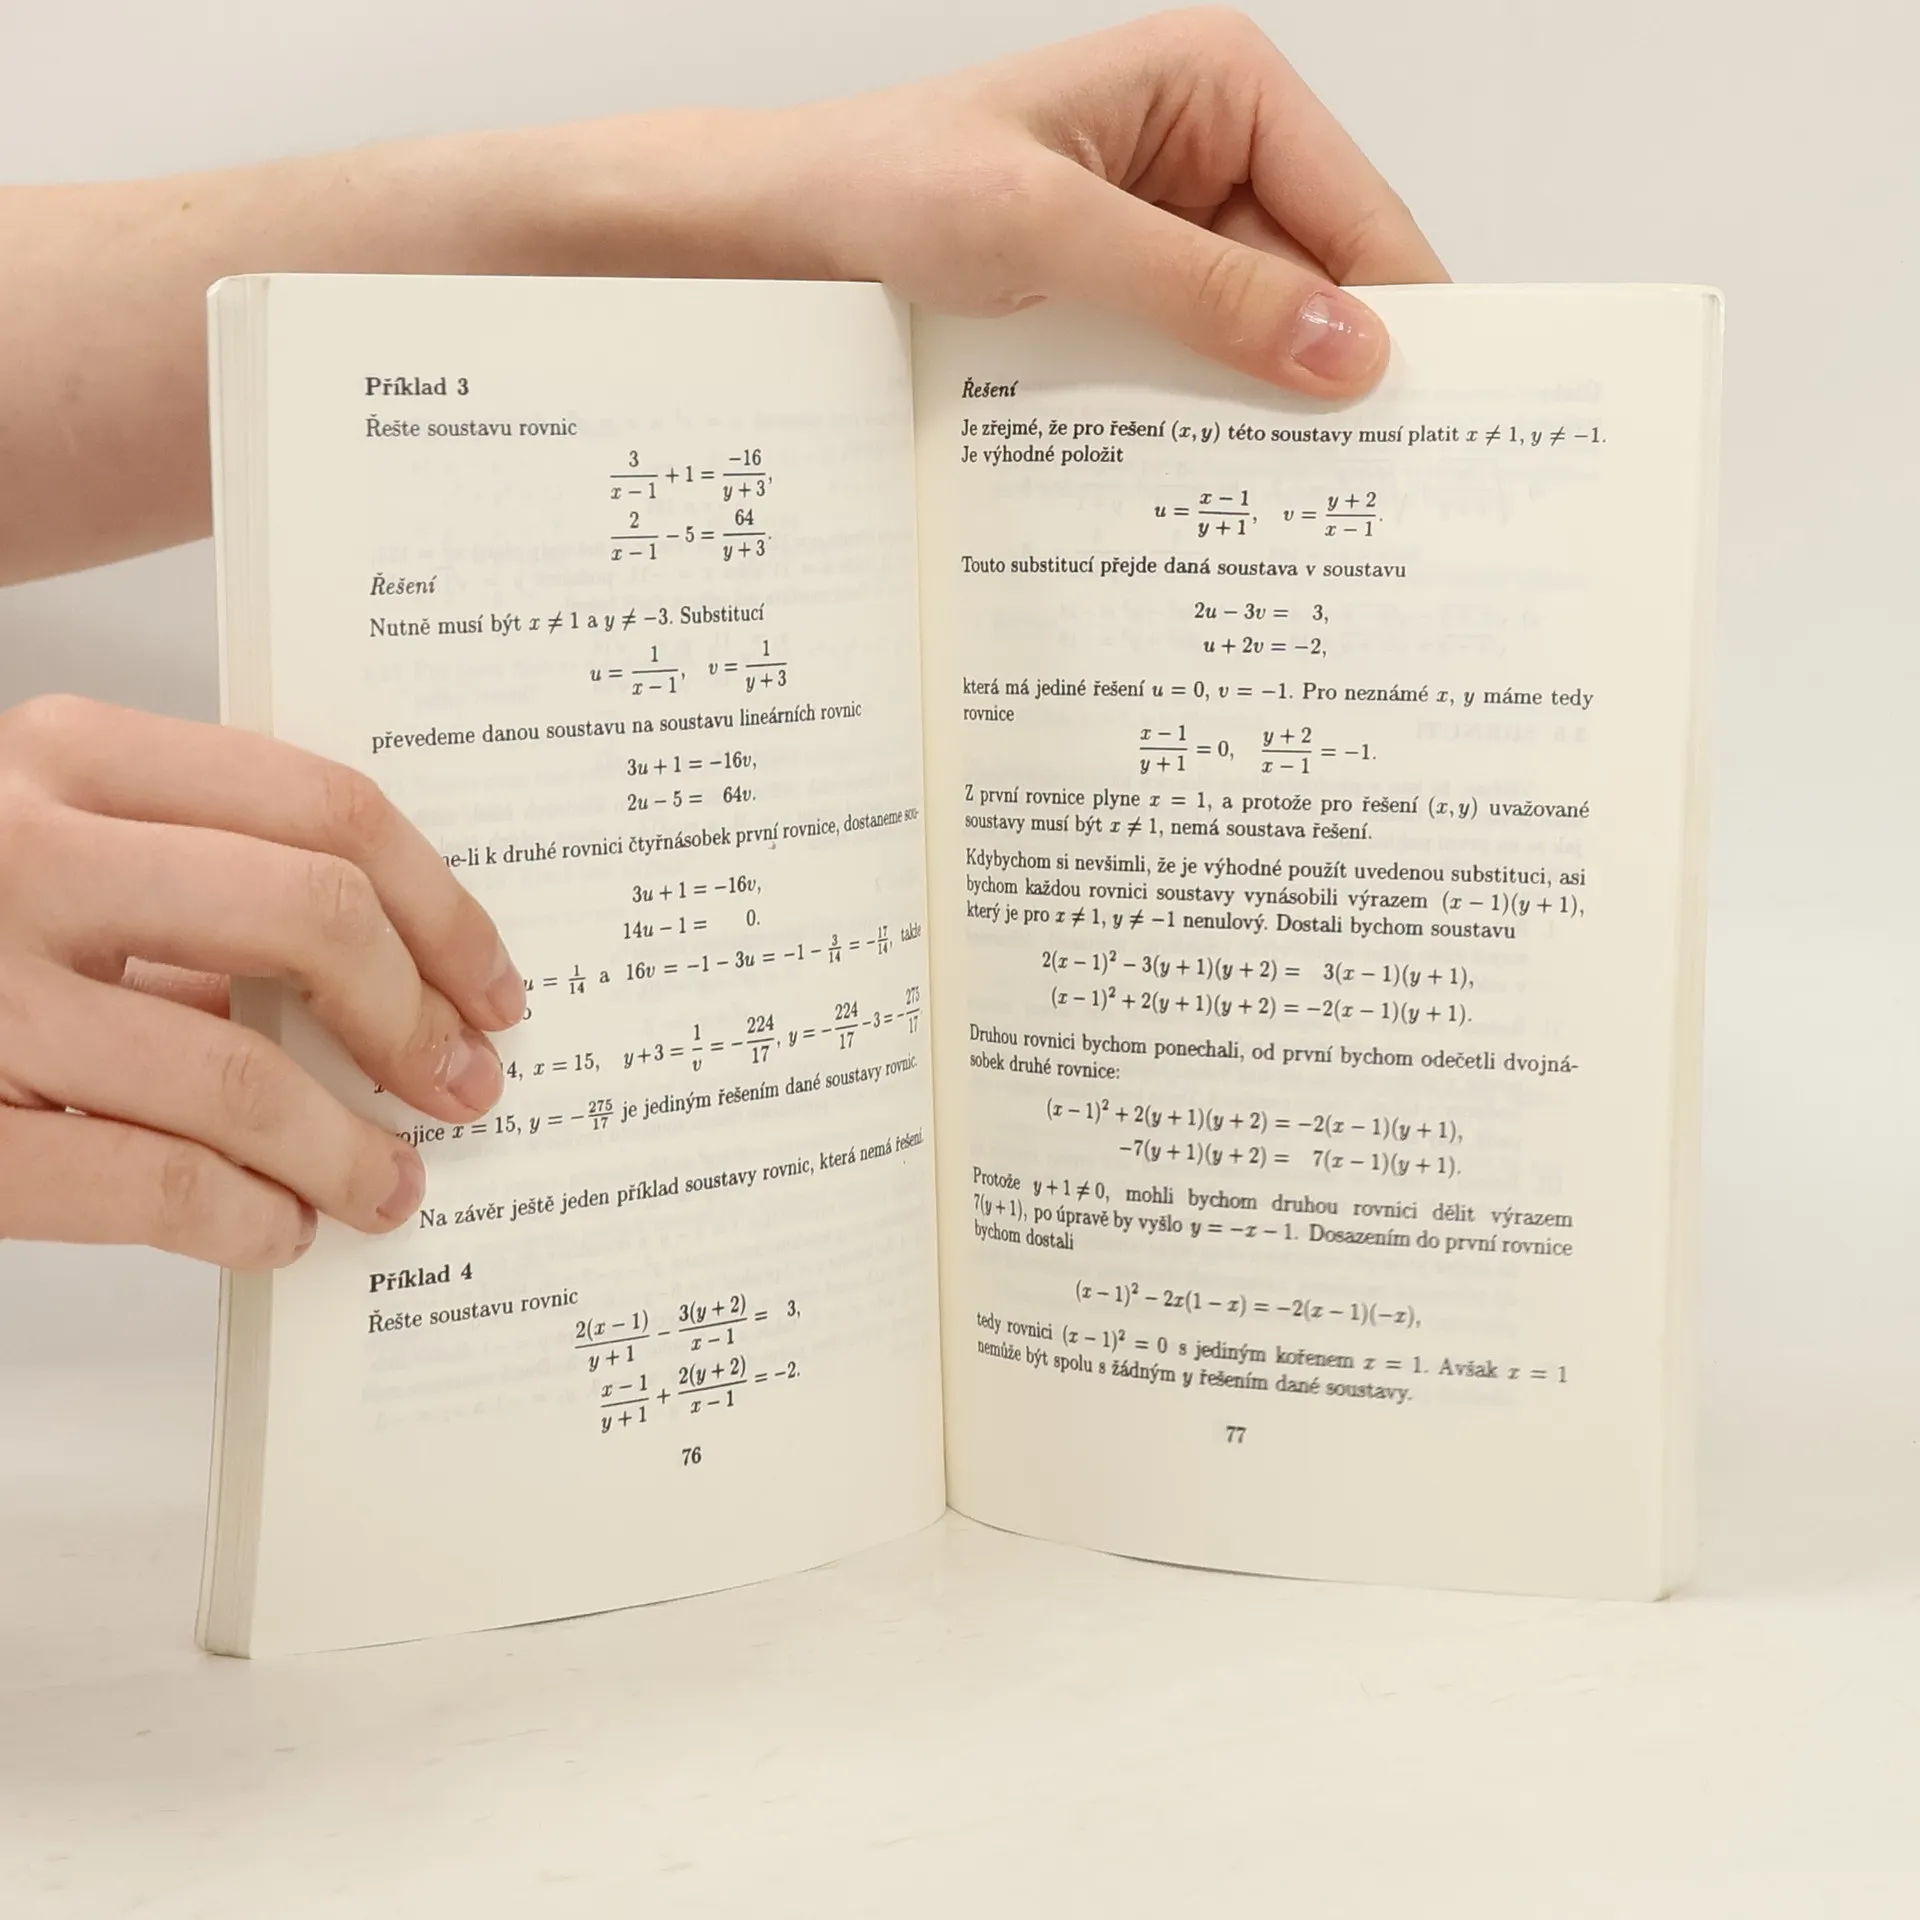 Příklad 3
Řešte soustavu rovnic
3/(x − 1) + 1 = −16/(y + 3),
2/(x − 1) − 5 = 64/(y + 3).
Řešení
Nutně musí být x ≠ 1 a y ≠ −3. Substitucí
u = 1/(x − 1), v = 1/(y + 3)
převedeme danou soustavu na soustavu lineárních rovnic
3u + 1 = −16v,
2u − 5 = 64v.
k druhé rovnici čtyřnásobek první rovnice, dostaneme sou-
3u + 1 = −16v,
14u − 1 = 0.
u = 1/14 a 16v = −1 − 3u = −1 − 3/14 = −17/14, takže
4, x = 15, y + 3 = 1/v = −224/17, y = −224/17 − 3 = −275/17.
x = 15, y = −275/17 je jediným řešením dané soustavy rovnic.
Na závěr ještě jeden příklad soustavy rovnic, která nemá řešení.
Příklad 4
Řešte soustavu rovnic
2(x − 1)/(y + 1) − 3(y + 2)/(x − 1) = 3,
(x − 1)/(y + 1) + 2(y + 2)/(x − 1) = −2.
76
Řešení
Je zřejmé, že pro řešení (x, y) této soustavy musí platit x ≠ 1, y ≠ −1.
Je výhodné položit
u = (x − 1)/(y + 1), v = (y + 2)/(x − 1).
Touto substitucí přejde daná soustava v soustavu
2u − 3v = 3,
u + 2v = −2,
která má jediné řešení u = 0, v = −1. Pro neznámé x, y máme tedy
rovnice
(x − 1)/(y + 1) = 0, (y + 2)/(x − 1) = −1.
Z první rovnice plyne x = 1, a protože pro řešení (x, y) uvažované
soustavy musí být x ≠ 1, nemá soustava řešení.
Kdybychom si nevšimli, že je výhodné použít uvedenou substituci, asi
bychom každou rovnici soustavy vynásobili výrazem (x − 1)(y + 1),
který je pro x ≠ 1, y ≠ −1 nenulový. Dostali bychom soustavu
2(x − 1)² − 3(y + 1)(y + 2) = 3(x − 1)(y + 1),
(x − 1)² + 2(y + 1)(y + 2) = −2(x − 1)(y + 1).
Druhou rovnici bychom ponechali, od první bychom odečetli dvojná-
sobek druhé rovnice:
(x − 1)² + 2(y + 1)(y + 2) = −2(x − 1)(y + 1),
−7(y + 1)(y + 2) = 7(x − 1)(y + 1).
Protože y + 1 ≠ 0, mohli bychom druhou rovnici dělit výrazem
7(y + 1), po úpravě by vyšlo y = −x − 1. Dosazením do první rovnice
bychom dostali
(x − 1)² − 2x(1 − x) = −2(x − 1)(−x),
tedy rovnici (x − 1)² = 0 s jediným kořenem x = 1. Avšak x = 1
nemůže být spolu s žádným y řešením dané soustavy.
77